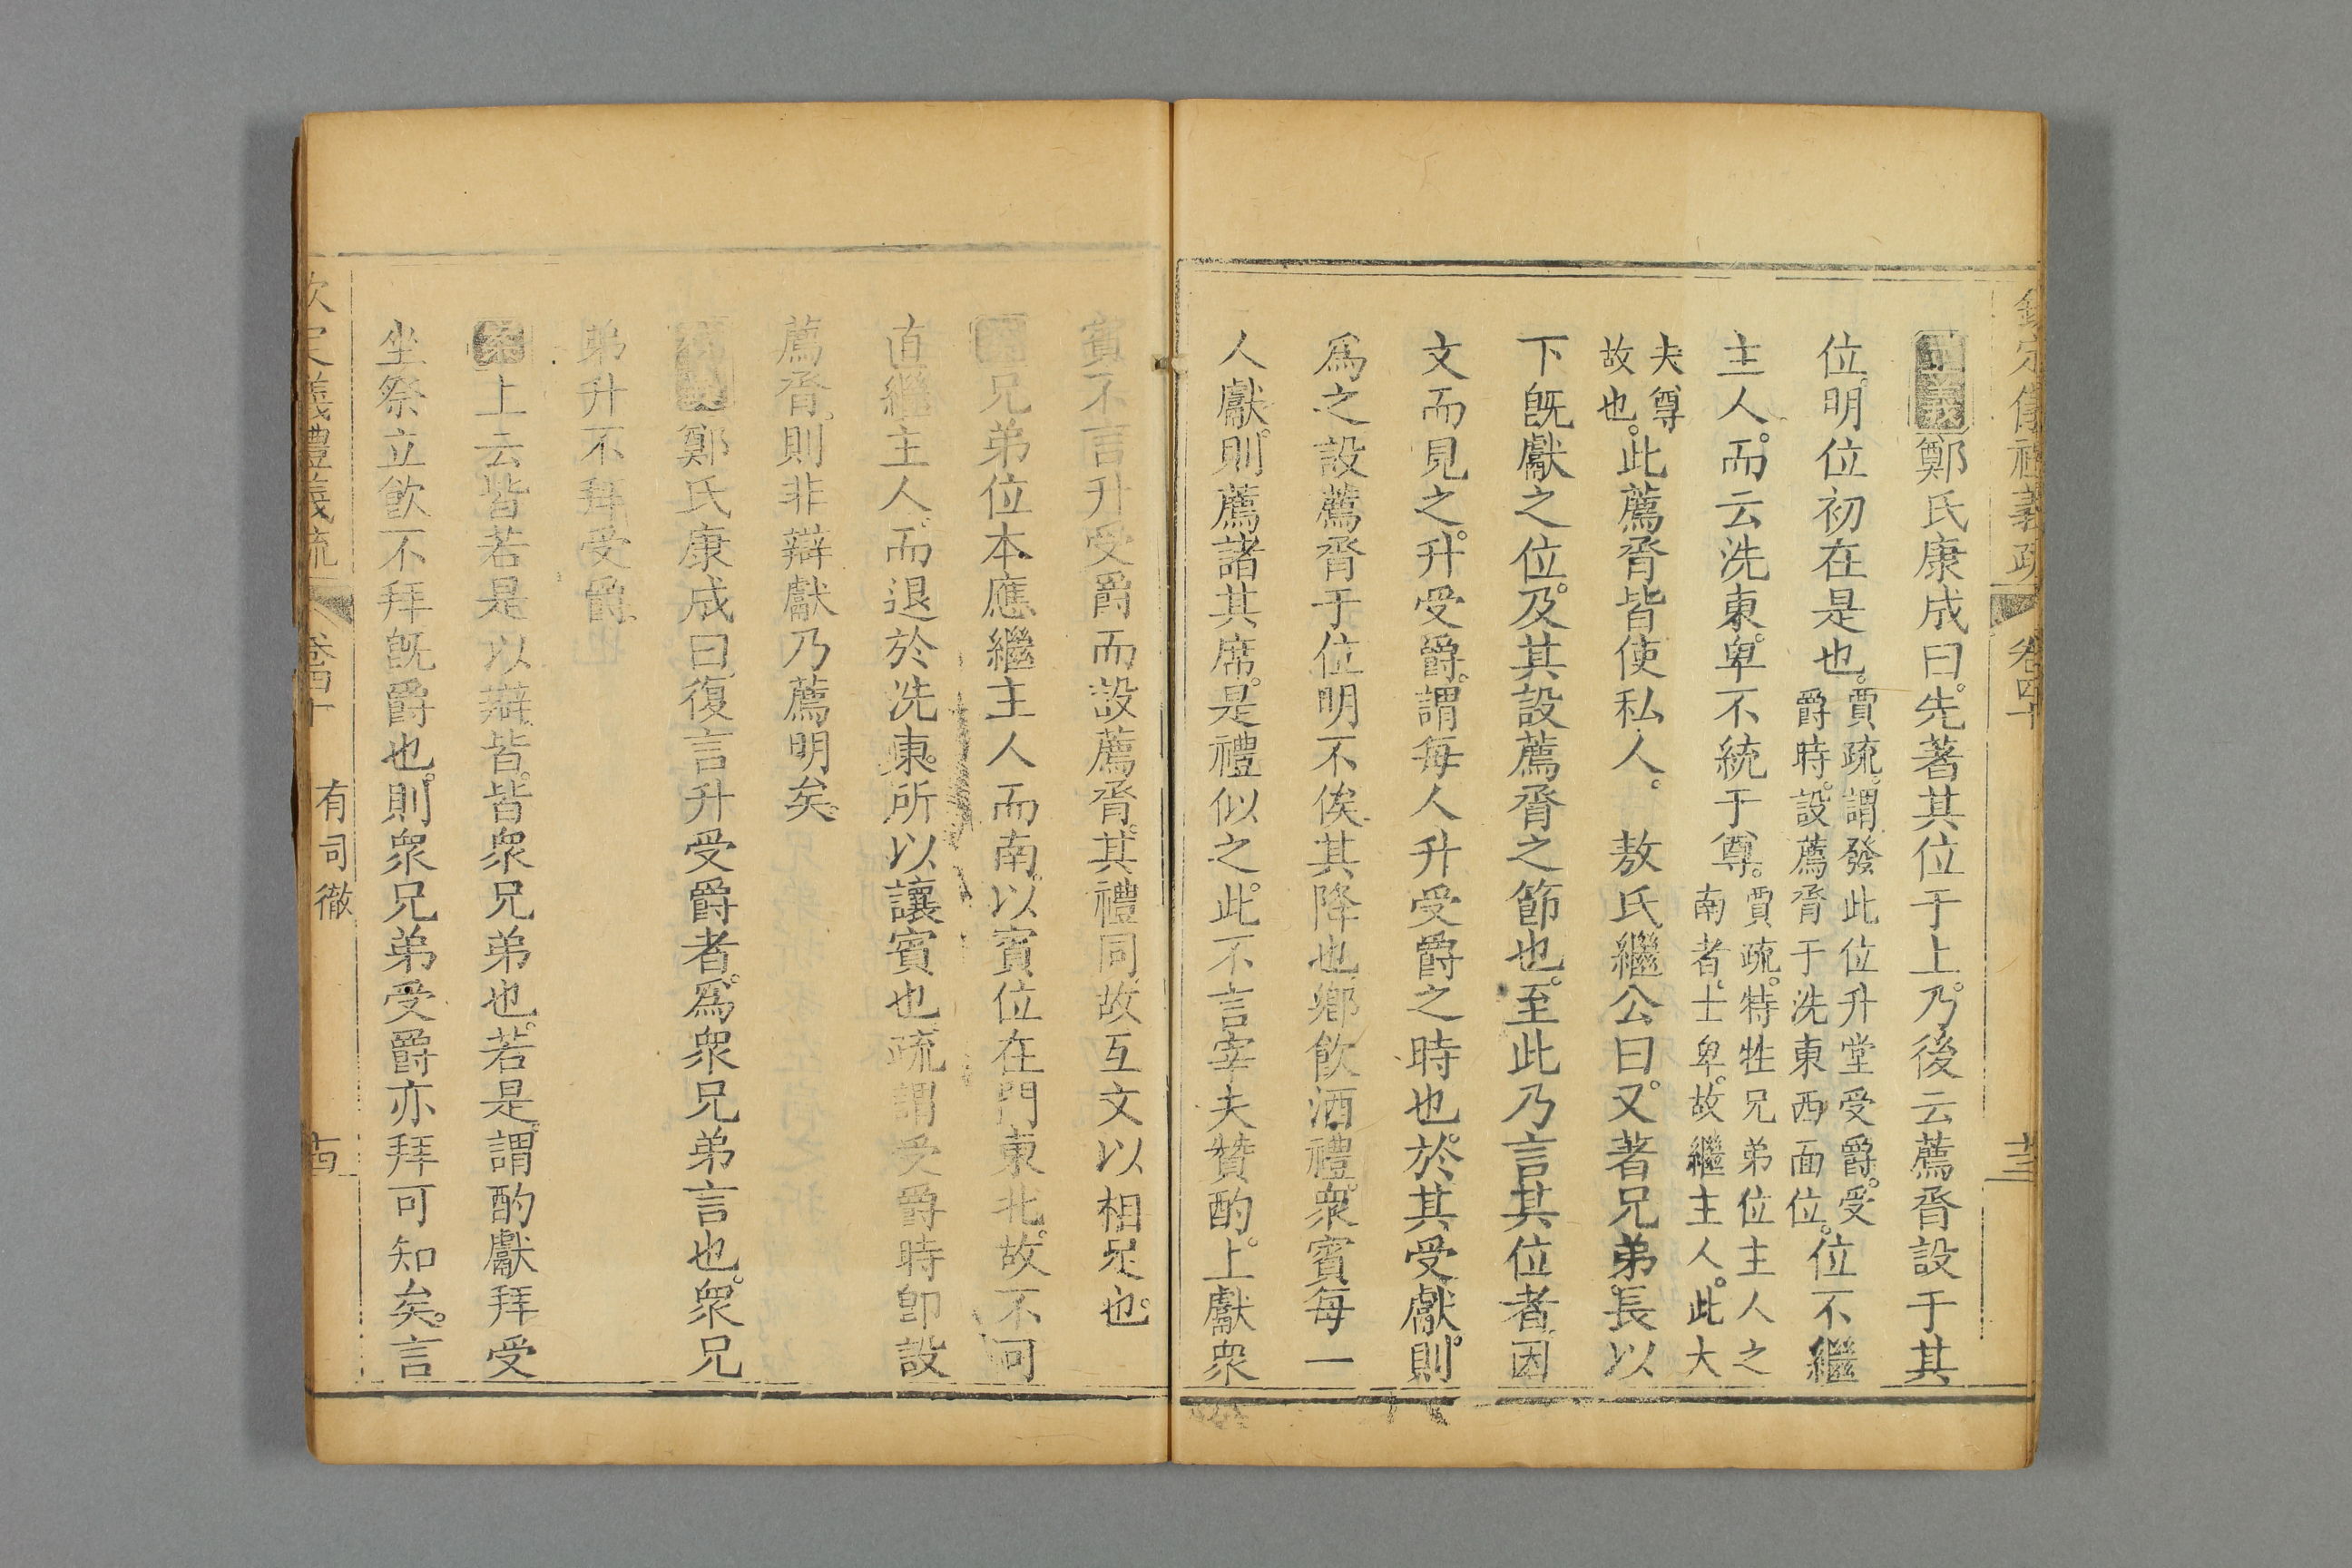 欽定儀禮義疏 卷四十
正義鄭氏康成曰。先著其位于上。乃後云薦脀設于其
位。明位初在是也。賈疏。謂發此位升堂受爵。受爵時。設薦脀于洗東西面位。位不繼
主人。而云洗東。卑不統于尊。賈疏。特牲兄弟位主人之南者。士卑。故繼主人。此大
夫尊故也。此薦脀皆使私人。 敖氏繼公曰。又著兄弟長以
下旣獻之位。及其設薦脀之節也。至此乃言其位者。因
文而見之。升受爵。謂每人升受爵之時也。於其受獻。則
爲之設薦脀于位。明不俟其降也。鄉飮酒禮。衆賓每一
人獻。則薦諸其席。是禮似之。此不言宰夫贊酌。上獻衆
賓不言升受爵而設薦脀。其禮同。故互文以相足也。
兄弟位本應繼主人而南。以賓位在門東北。故不可
直繼主人。而退於洗東。所以讓賓也。疏謂受爵時卽設
薦脀。則非辯獻乃薦明矣。
鄭氏康成曰。復言升受爵者。爲衆兄弟言也。衆兄
弟升不拜受爵。
案上云皆若是以辯。皆。皆衆兄弟也。若是。謂酌獻拜受
坐祭立飮不拜旣爵也。則衆兄弟受爵亦拜可知矣。言
欽定儀禮義疏 卷四十 有司徹